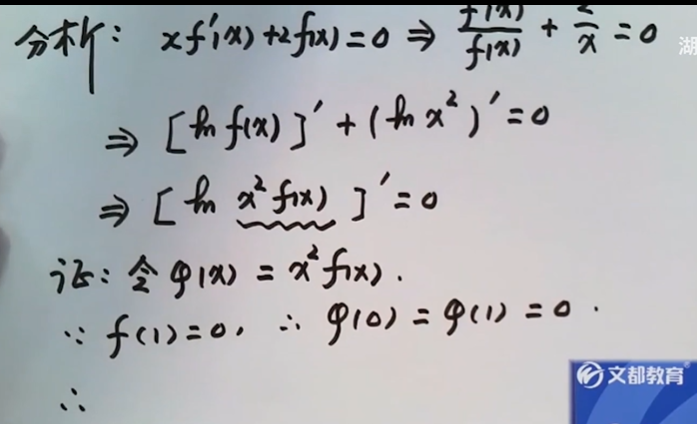 分析: xf'(x)+2f(x)=0 ⇒ f'(x)/f(x) + 2/x = 0
湖
⇒ [ln f(x)]' + (ln x²)' = 0
⇒ [ln x² f(x)]' = 0
证: 令 φ(x) = x² f(x).
∵ f(1)=0, ∴ φ(0) = φ(1) = 0.
∴
文都教育